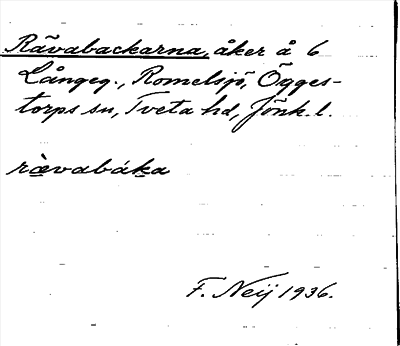 Rävabackarna, åker å 6
Långeg., Romelsjö, Ögges-
torps sn, Tveta hd, Jönk. l.
rävabáka
F. Neij 1936.